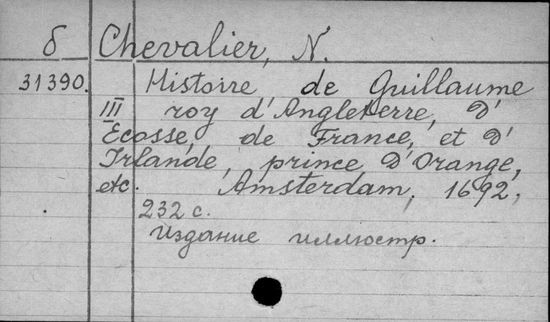 б Chevalier, N.
31390. Histoire de Guillaume
III roy d'Angleterre, D'
Ecosse, de France, et D'
Irlande, prince D'Orange,
etc. Amsterdam, 1692,
232 с.
Издание иллюстр.